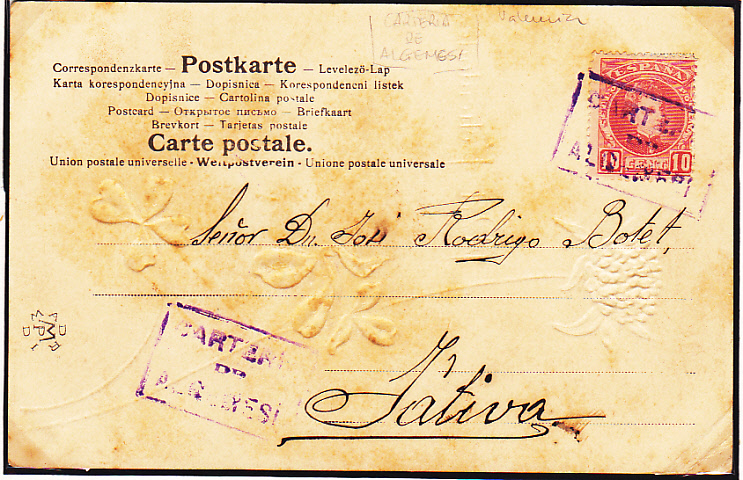 CARTERIA
DE
ALGEMESI
Valencia
Correspondenzkarte — Postkarte — Levelező-Lap
Karta korespondencyjna — Dopisnica — Korespondencni listek
Dopisnice — Cartolina postale
Postcard — Открытое письмо — Briefkaart
Brevkort — Tarjetas postale
Carte postale.
Union postale universelle - Weltpostverein - Unione postale universale
ESPAÑA
10 10
CARTE
DE
Señor Dn. José Rodrigo Botet,
CARTERI
DE
ALGEMESI
Játiva